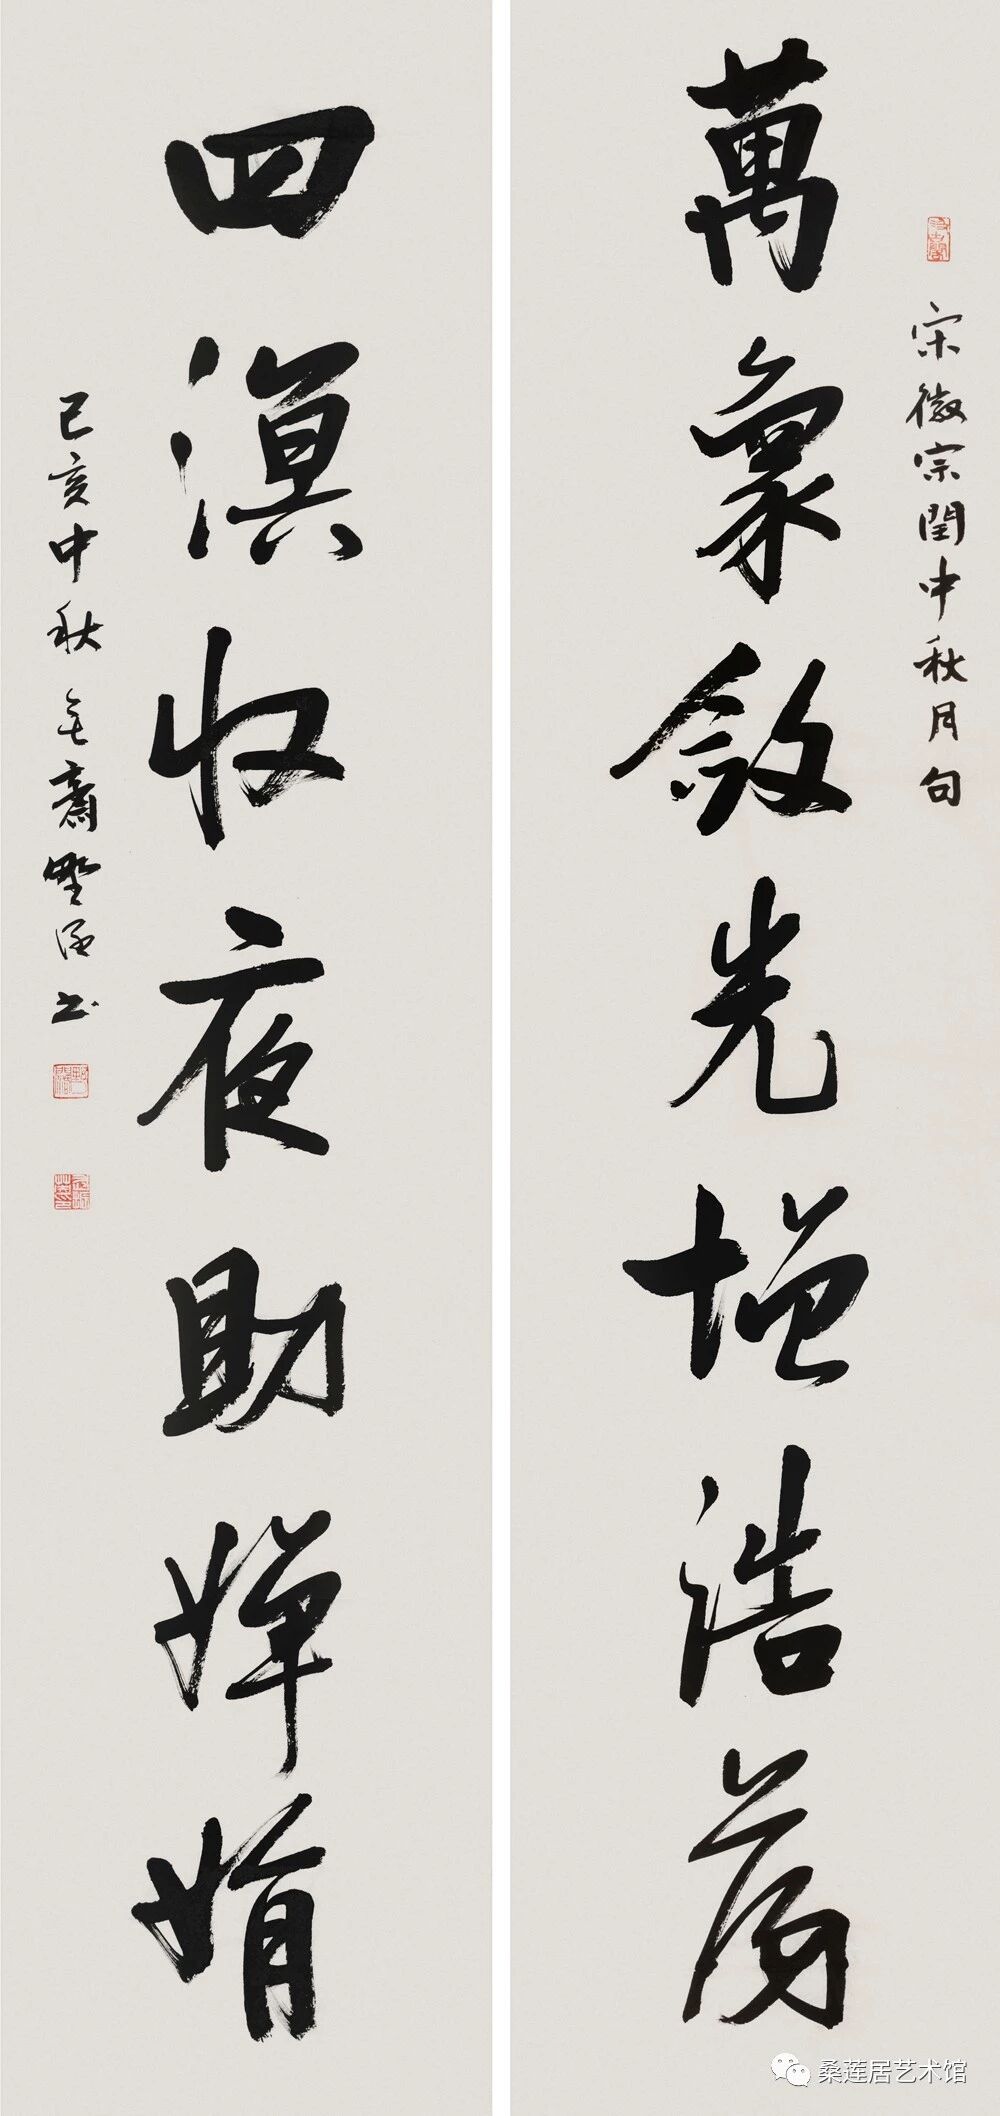 宋徽宗閏中秋月句
萬象斂光增浩蕩
四溟收夜助嬋娟
己亥中秋 齋墅涵书
桑莲居艺术馆